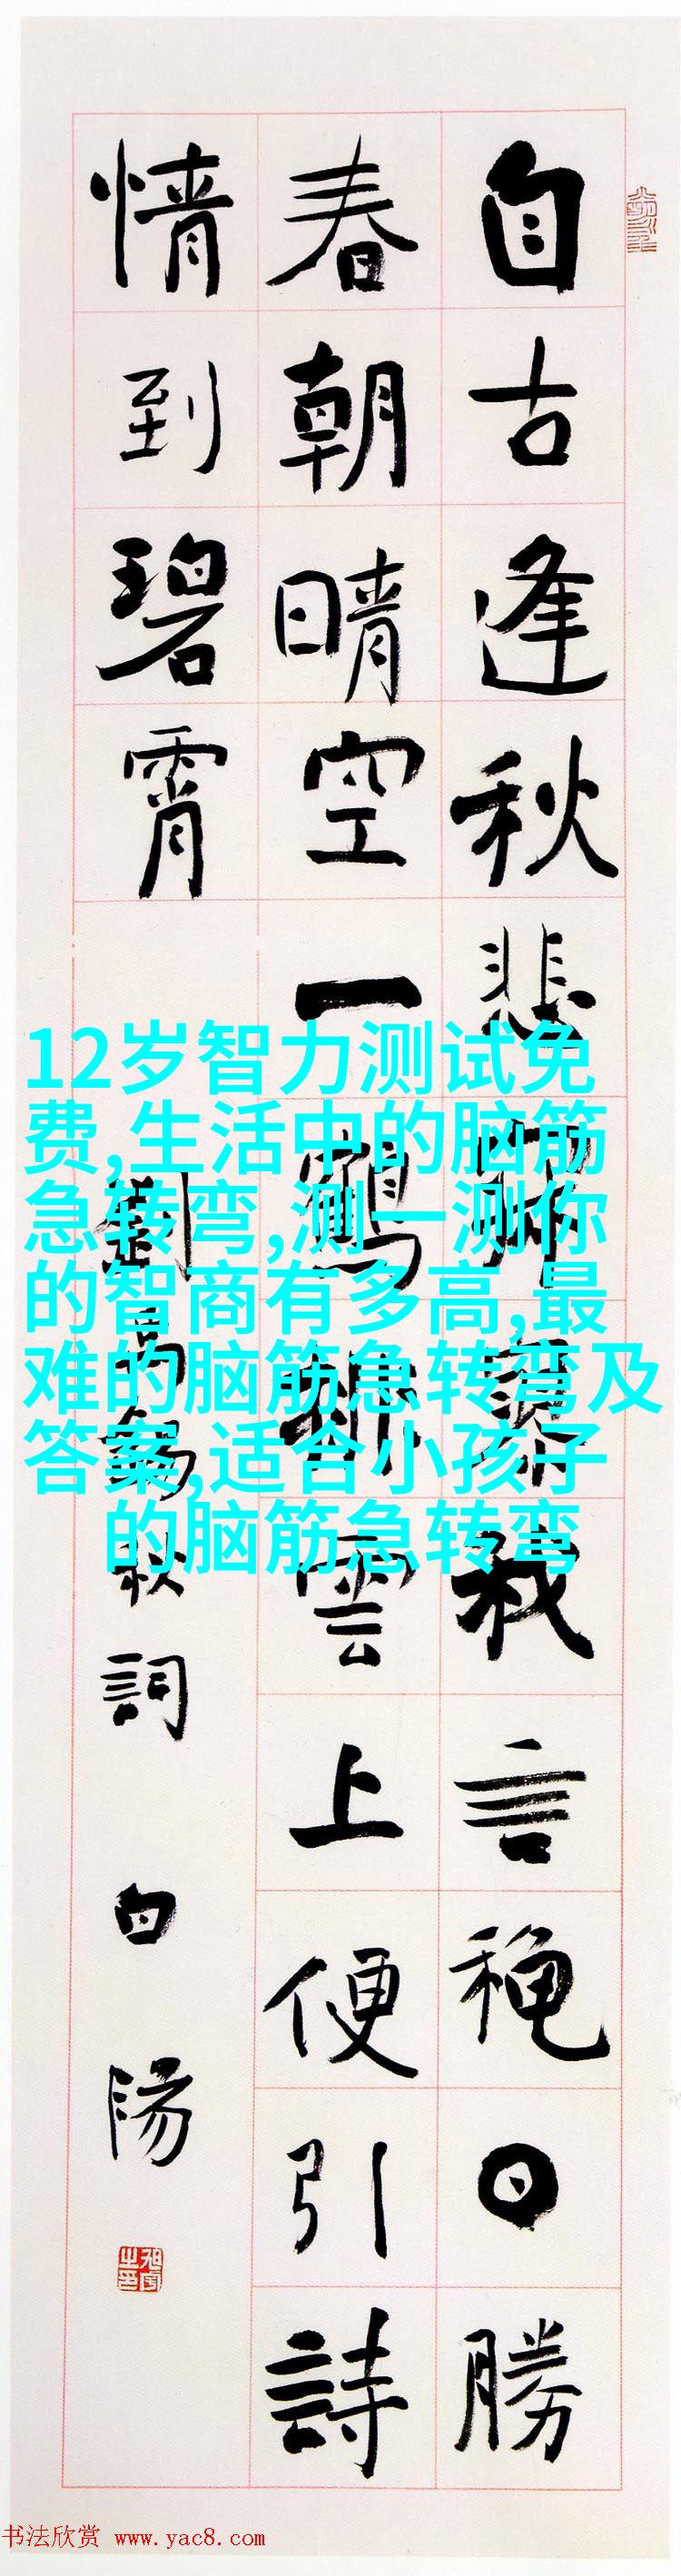 自古逢秋悲寂寥我言穐日勝
春朝晴空一鶴排雲上便引詩
情到碧霄
劉禹錫秋詞 白陽
12岁智力测试免
费,生活中的脑筋
急转弯,测一测你
的智商有多高,最
难的脑筋急转弯及
答案,适合小孩子
的脑筋急转弯
书法欣赏 www.yac8.com